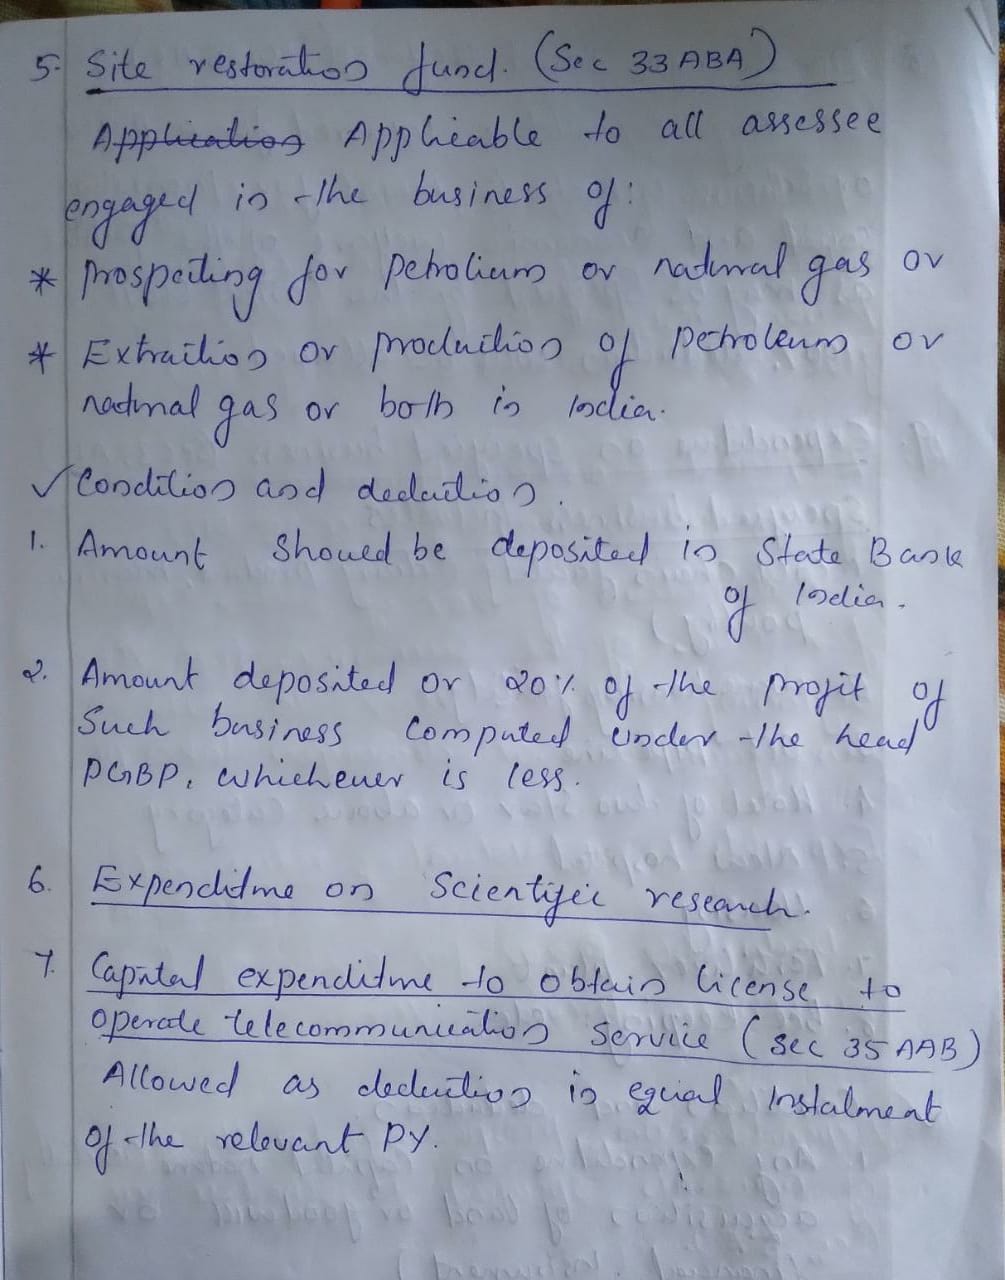 5. Site restoration fund. (Sec 33 ABA)
Application Applicable to all assessee
engaged in the business of:
* Prospecting for petrolium or natural gas or
* Extraction or production of petroleum or
natural gas or both in India.
✓ Condition and deduction.
1. Amount should be deposited in State Bank
of India.
2. Amount deposited or 20% of the profit of
Such business computed under the head
PGBP, whichever is less.
6. Expenditure on Scientific research.
7. Capital expenditure to obtain license to
operate telecommunication Service (Sec 35 AAB)
Allowed as deduction in equal instalment
of the relevant PY.